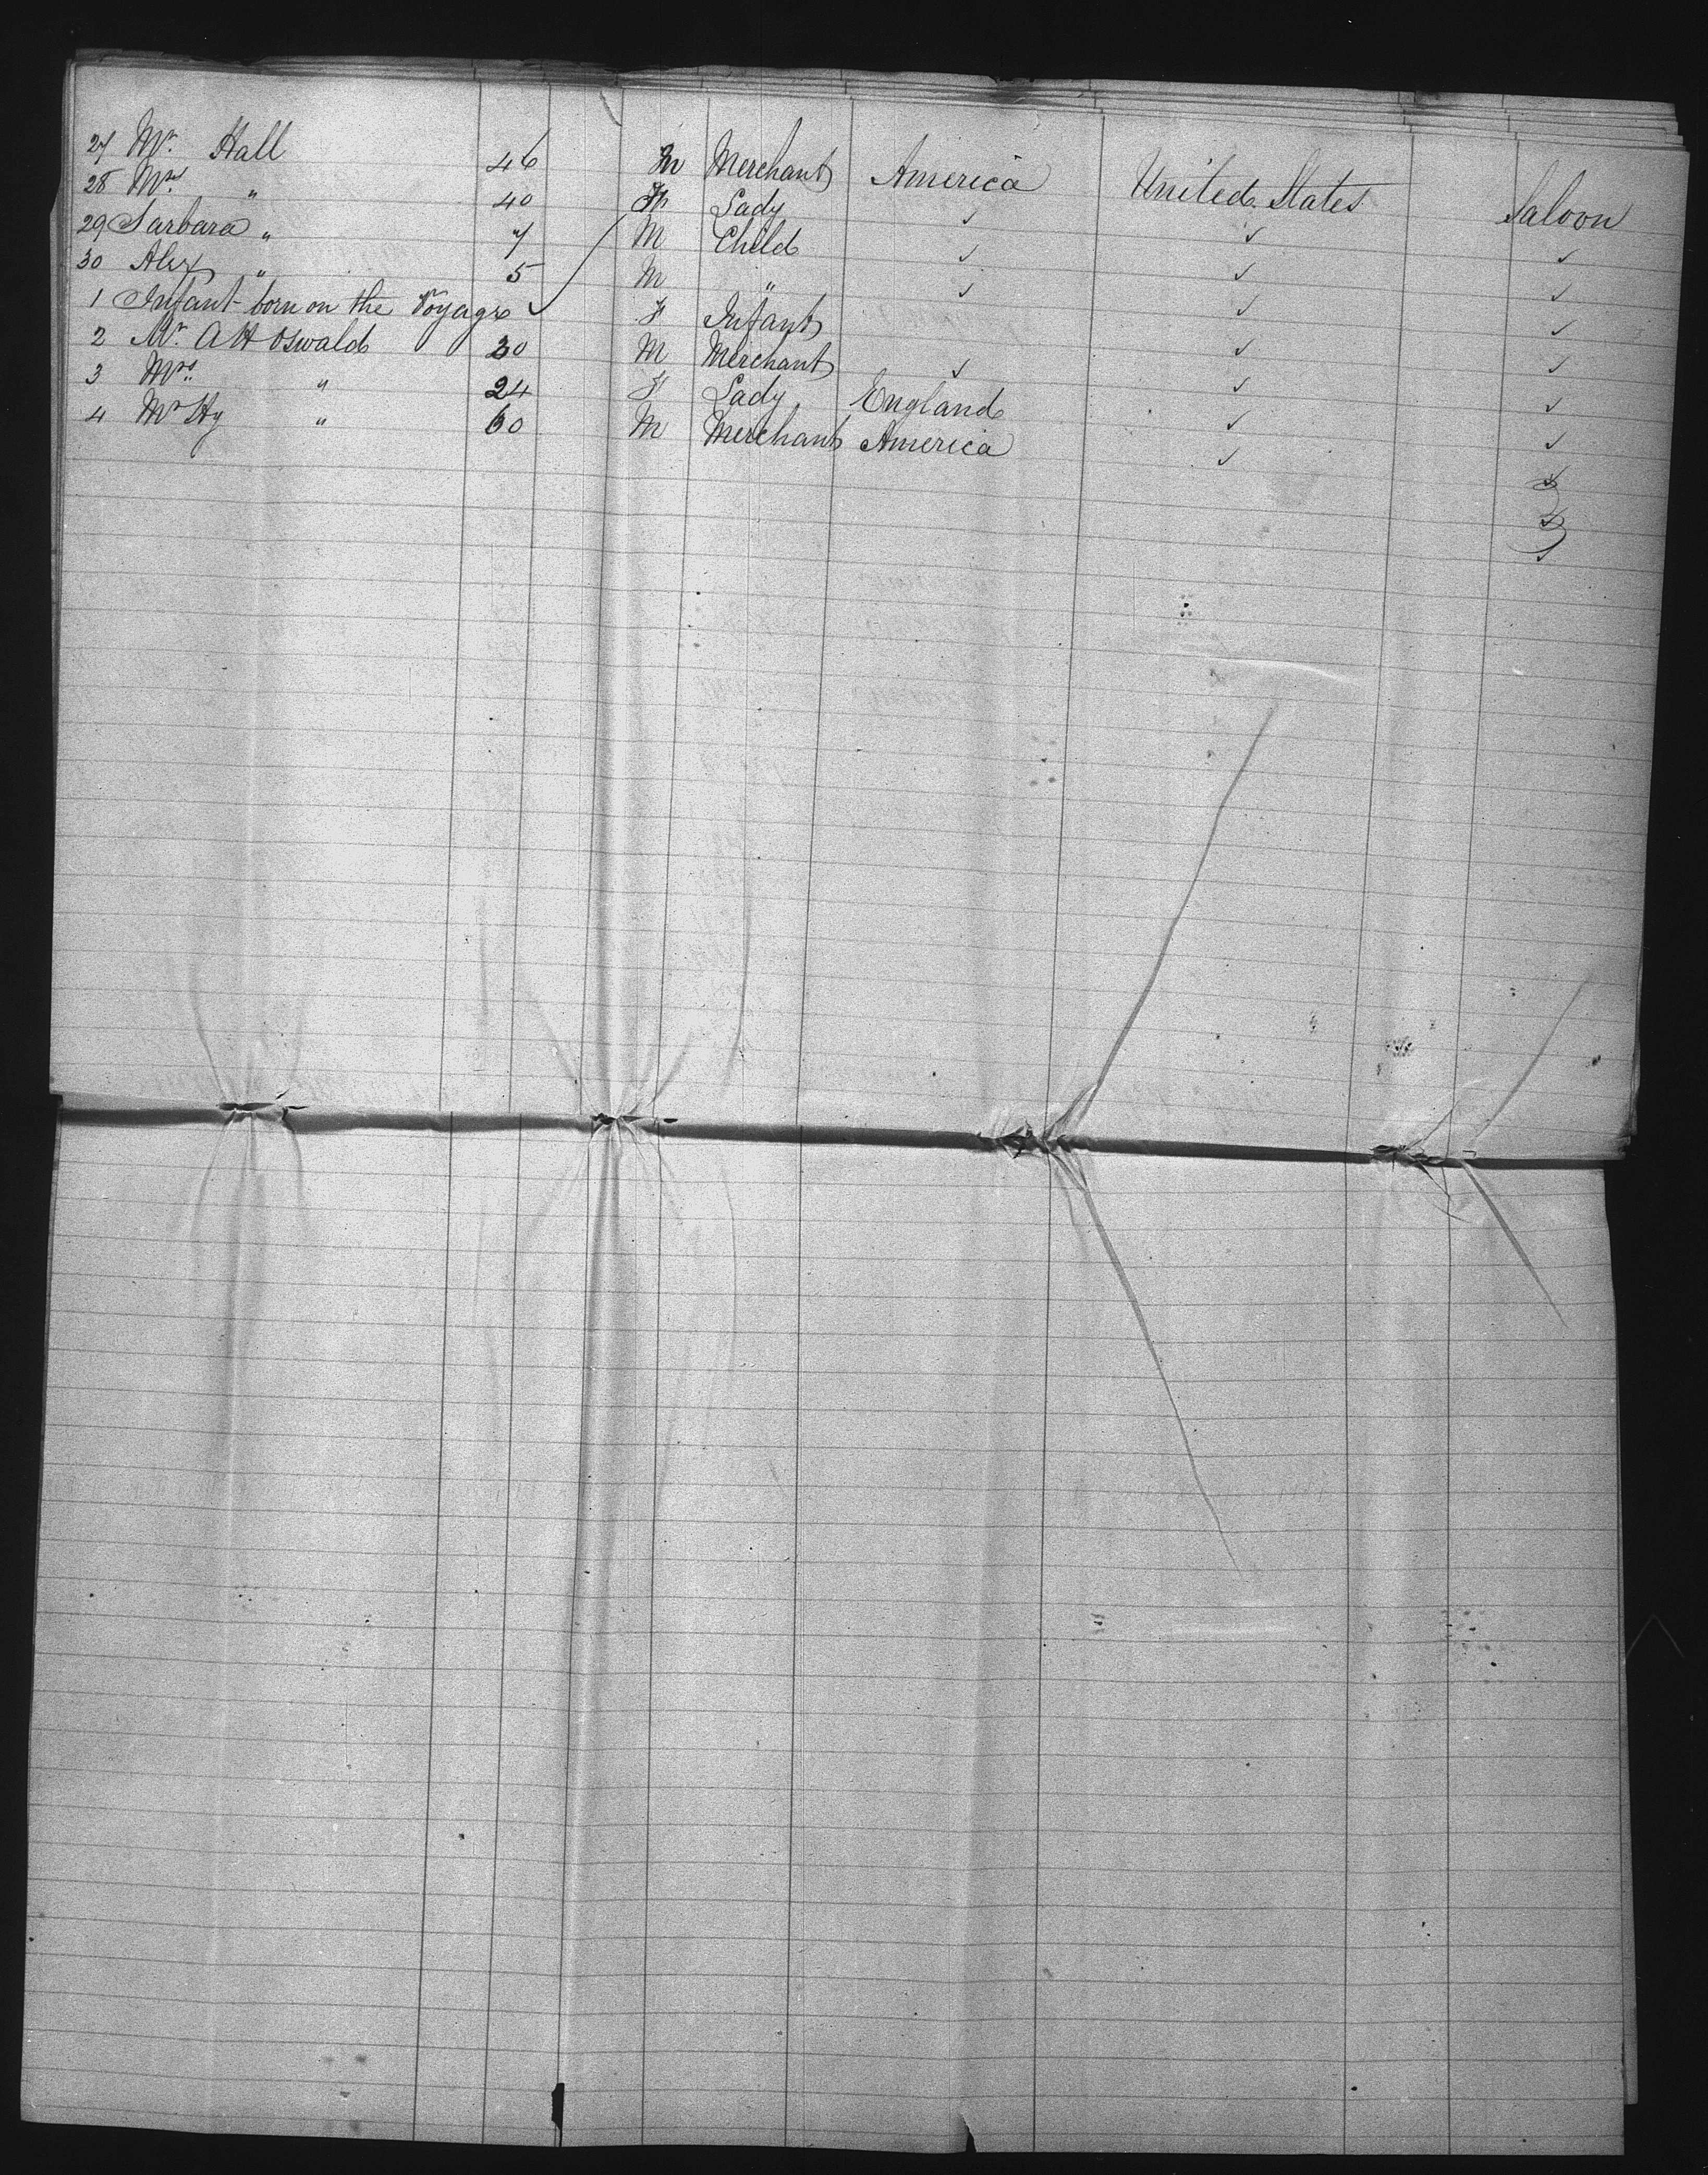 27 Mr. Hall 46 M Merchant America United States Saloon
28 Mrs. " 40 F Lady ✓ ✓ ✓
29 Sarbara " 7 M Child ✓ ✓ ✓
30 Alex " 5 M " ✓ ✓ ✓
1 Infant born on the Voyage ✓ F Infant ✓ ✓
2 Mr. A H Oswald 30 M Merchant ✓ ✓ ✓
3 Mrs. " 24 F Lady England ✓ ✓
4 Mr Hy " 60 M Merchant America ✓ ✓